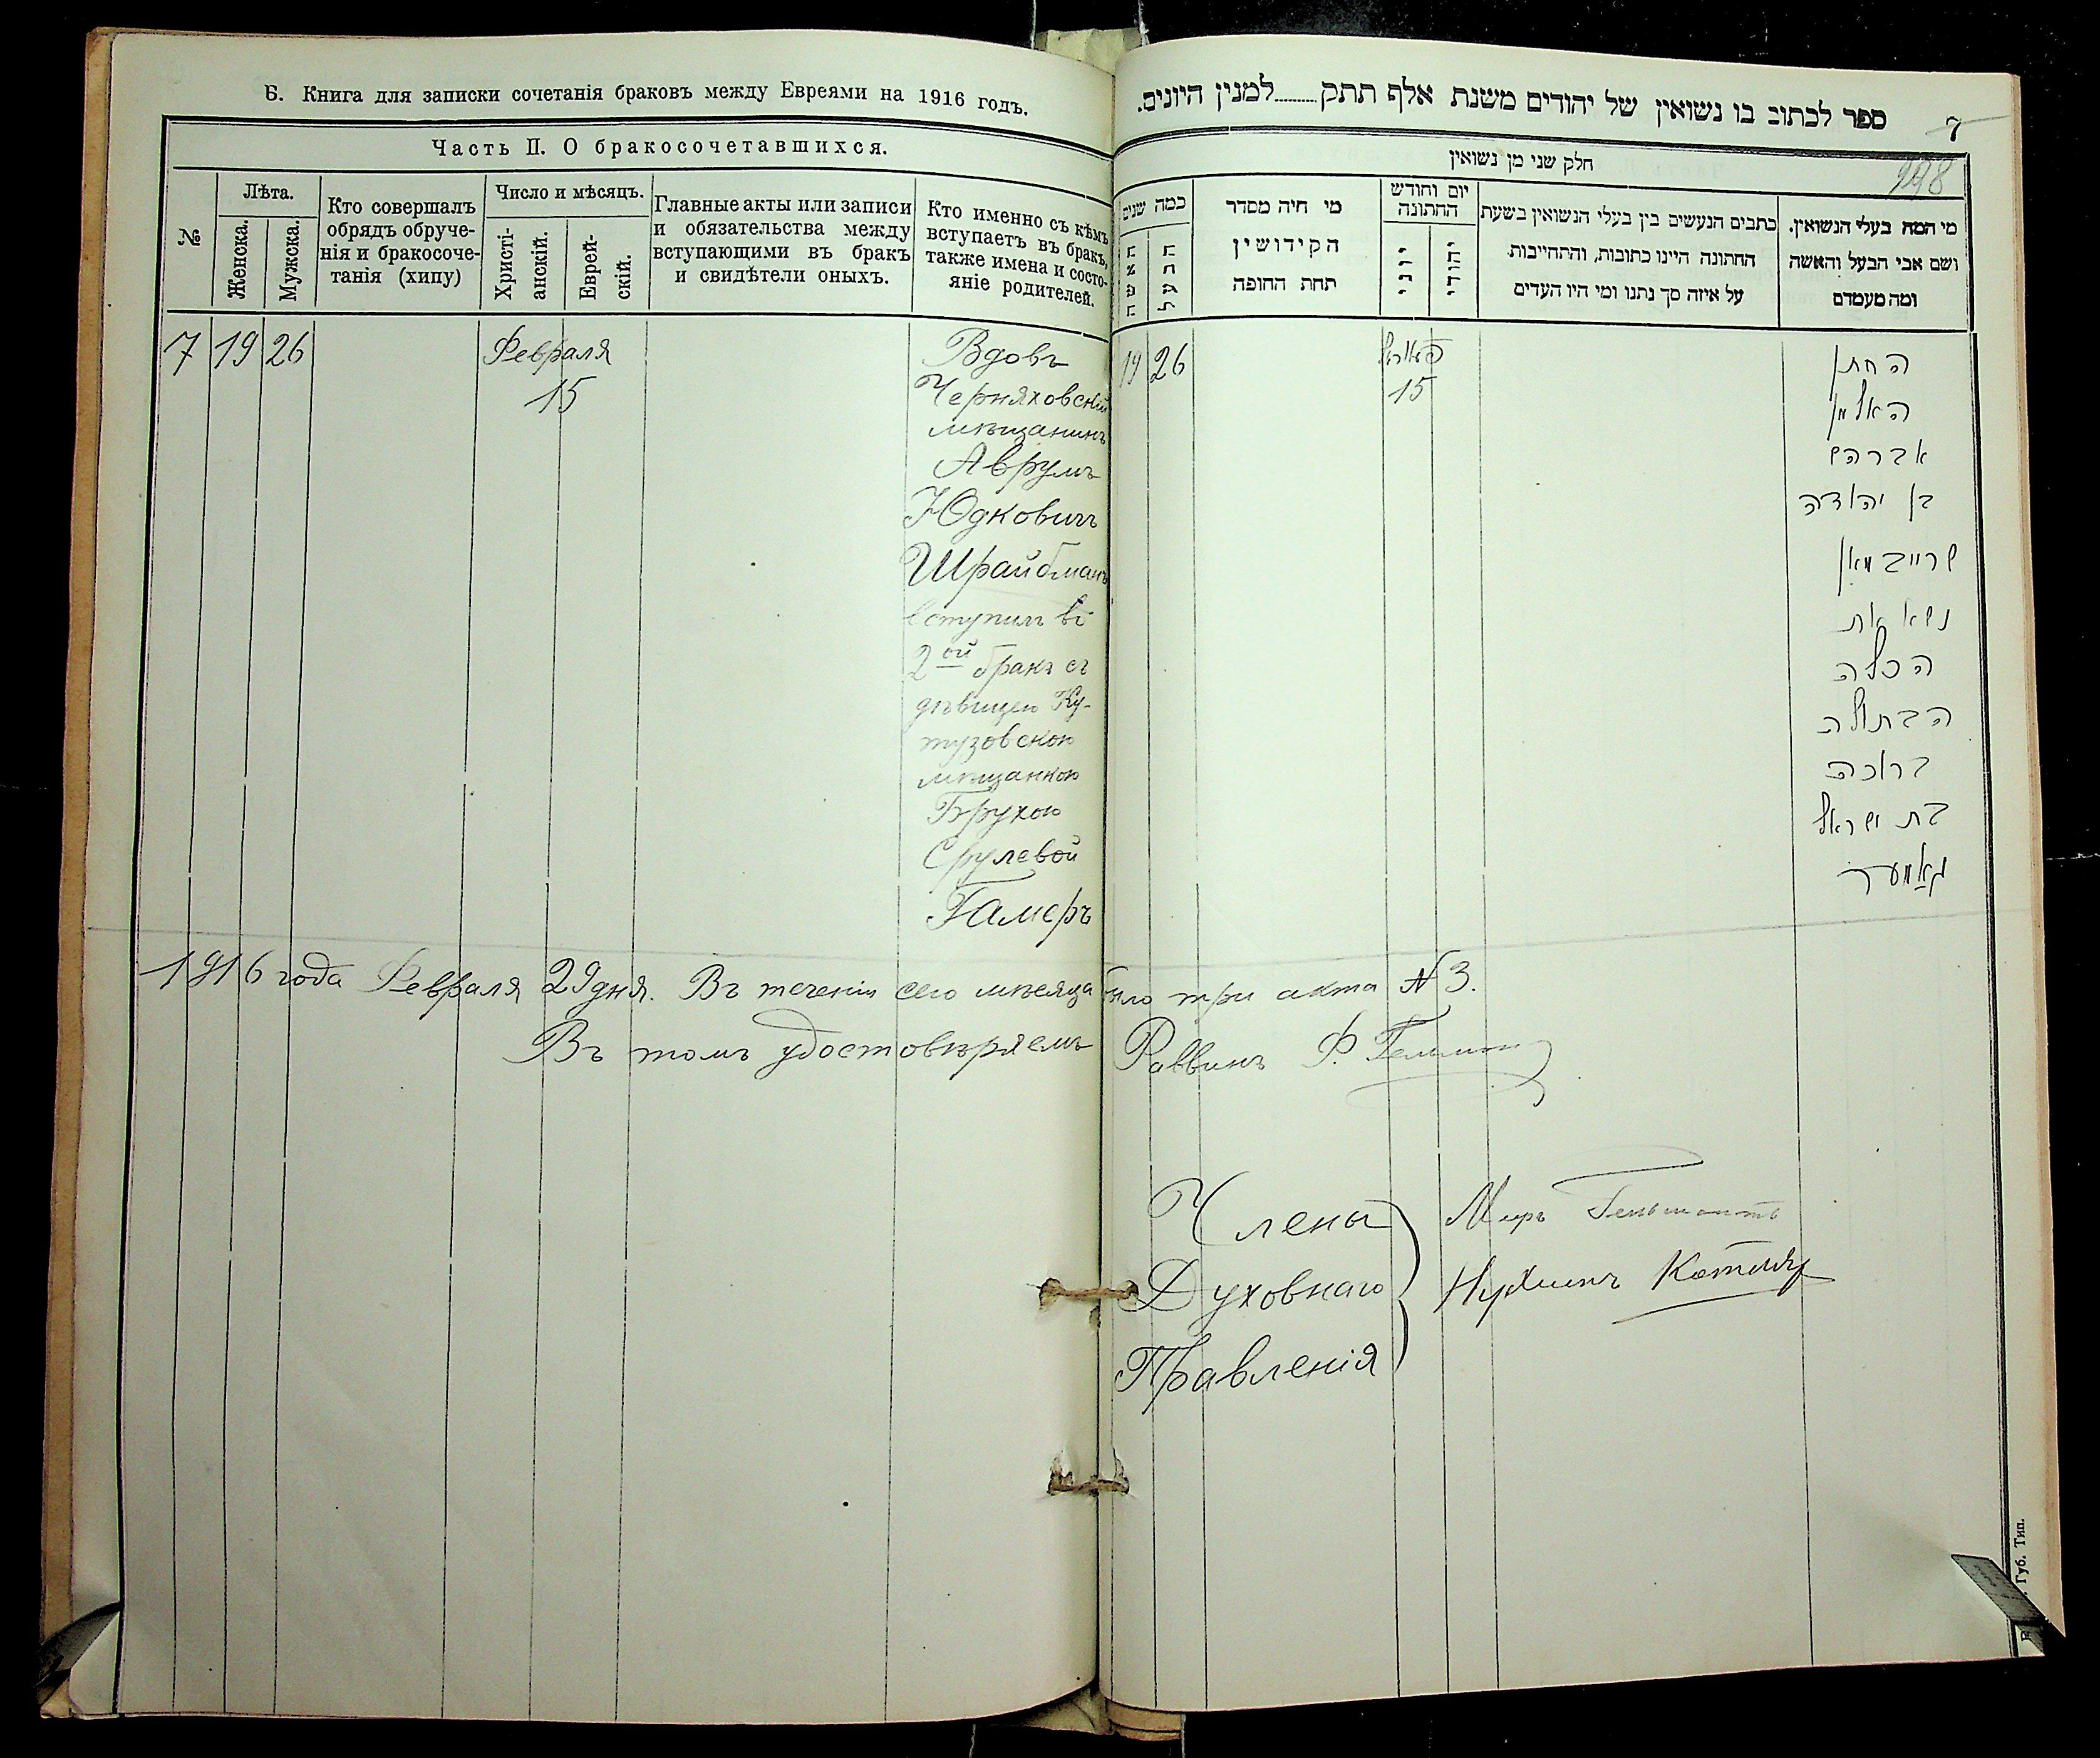 Б. Книга для записки сочетанія браковъ между Евреями на 1916 годъ.
Часть II. О бракосочетавшихся.
№
Лѣта.
Женска.
Мужска.
Кто совершалъ
обрядъ обруче-
нія и бракосоче-
танія (хипу)
Число и мѣсяцъ.
Христі-
анскій.
Еврей-
скій.
Главные акты или записи
и обязательства между
вступающими въ бракъ
и свидѣтели оныхъ.
Кто именно съ кѣмъ
вступаетъ въ бракъ,
также имена и состо-
яніе родителей.
7 19 26
Февраля
15
Вдовъ
Черняховскій
мѣщанинъ
Аврумъ
Юдковичъ
Шрайбманъ
вступилъ въ
2ой бракъ съ
дѣвицею Ку-
тузовскою
мѣщанкою
Брухою
Срулевой
Гамеръ
ספר לכתוב בו נשואין של יהודים משנת אלף תתק........למנין היונים.
7
חלק שני מן נשואין
כמה שנים
האשה
הבעל
מי היה מסדר
הקידושין
תחת החופה
יום וחודש
החתונה
יוני
יהודי
כתבים הנעשים בין בעלי הנשואין בשעת
החתונה היינו כתובות, והתחייבות
על איזה סך נתנו ומי היו העדים
מי המה בעלי הנשואין.
ושם אבי הבעל והאשה
ומה מעמדם
19 26
15
החתן
האלמן
אברהם
בן יהודה
שרייבמאן
נשא את
הכלה
הבתולה
ברוכה
בת ישראל
גאמער
1916 года Февраля 29 дня. Въ теченіи сего мѣсяца было три акта № 3.
Въ томъ удостовѣряемъ Раввинъ Ф.
Члены
Духовнаго
Правленія
Котляр
Губ. Тип.